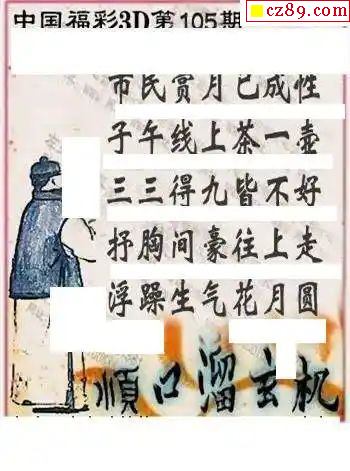 中国福彩3D第105期
cz89.com
市民赏月已成性
子午线上茶一壶
三三得九皆不好
抒胸间豪往上走
浮躁生气花月圆
顺口溜玄机